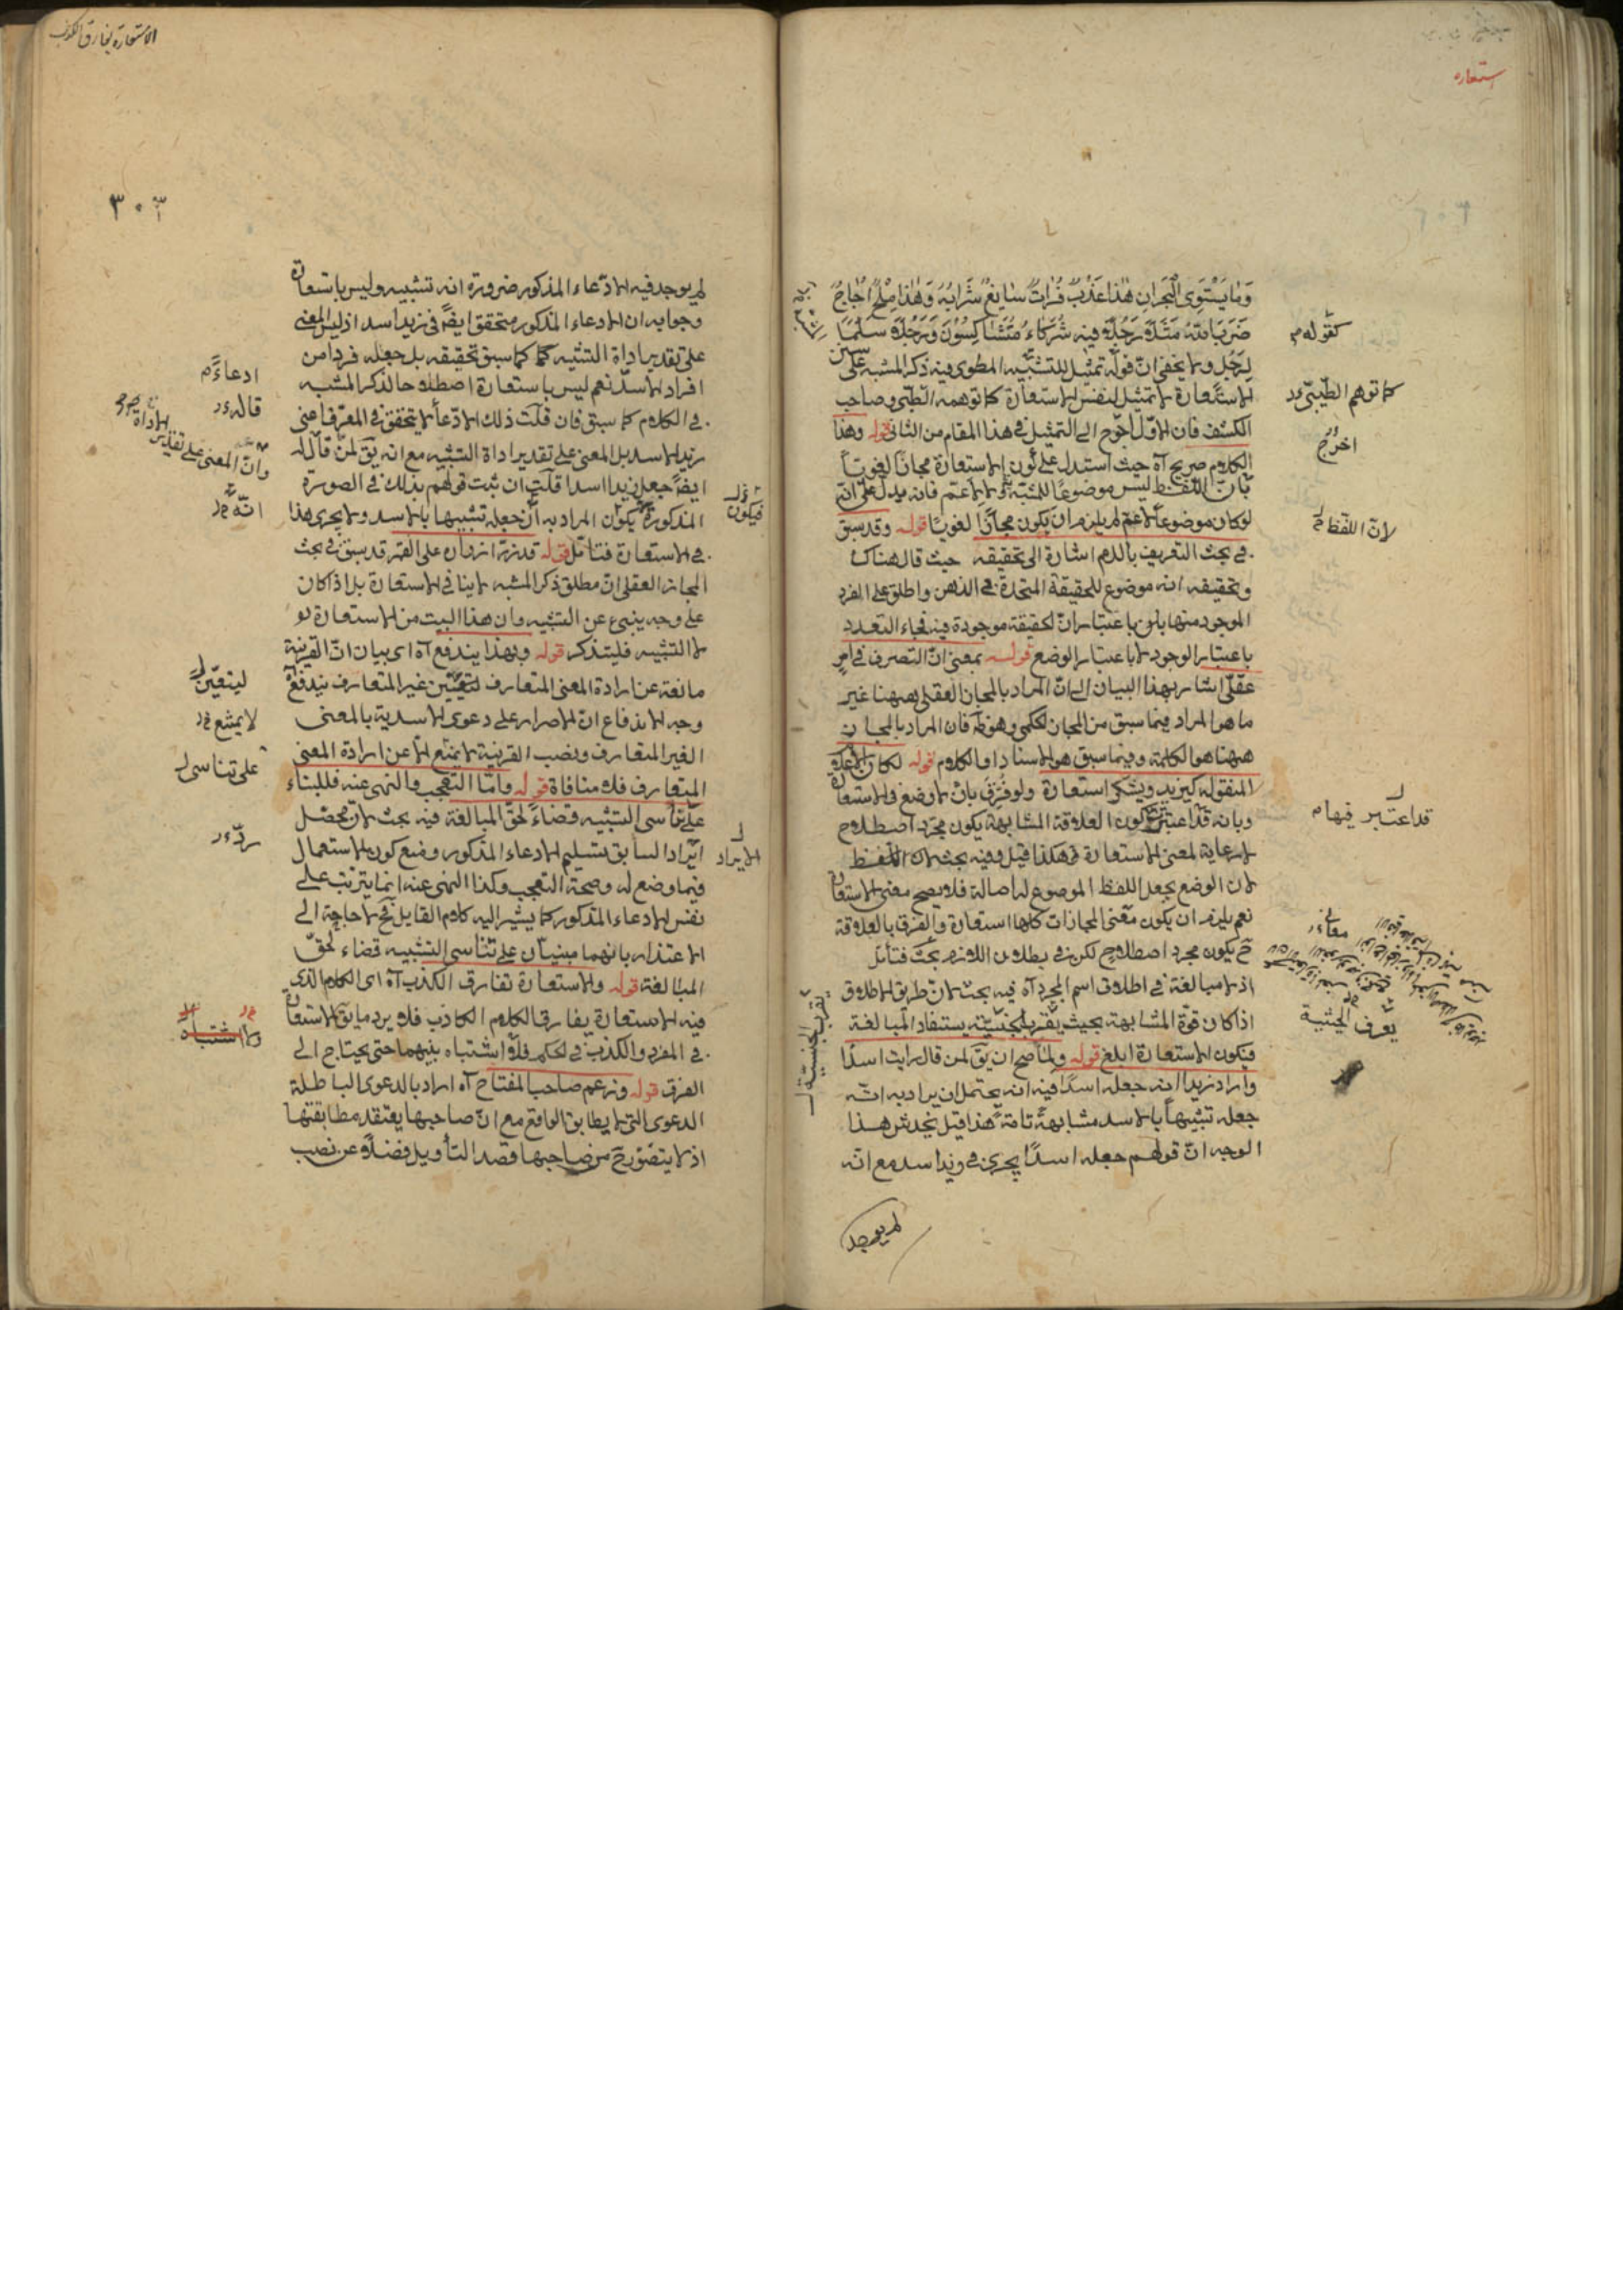 استعاره
وَمَا يَسْتَوِي الْبَحْرَانِ هٰذَا عَذْبٌ فُرَاتٌ سَايِغٌ شَرَابُهُ وَهٰذَا مِلْحٌ اُجَاجٌ
ضَرَبَ اللّٰهُ مَثَلًا رَجُلًا فِيهِ شُرَكَاءُ مُتَشَاكِسُونَ وَرَجُلًا سَلَمًا
لِرَجُلٍ ولا يخفى ان قوله تمثيل للتشبيه المطوى فيه ذكر المشبه على سنن
الاستعارة لا تمثيل لنفس الاستعارة كما توهمه الطيبى وصاحب
الكشف فان الاول احوج الى التمثيل فى هذا المقام من الثانى قوله وهذا
الكلام صريح آه حيث استدل على كون الاستعارة مجازا لغويا
بان اللفظ ليس موضوعا للمشبه ولا لاعم فانه يدل على انه
لو كان موضوعا لاعم لم يلزم ان يكون مجازا لغويا قوله وقد سبق
فى بحث التعريف باللام اشارة الى تحقيقه حيث قال هناك
وتحقيقه انه موضوع للحقيقة المتحدة فى الذهن واطلق على الفرد
الموجود منها باعتبار ان الحقيقة موجودة فيه فجاء التعدد
باعتبار الوجود لا باعتبار الوضع قوله بمعنى ان التصرف فى امر
عقلى اشار بهذا البيان الى ان المراد بالمجاز العقلى ههنا غير
ما هو المراد فيما سبق من المجاز الحكمى وهو ظ فان المراد بالمجاز
ههنا هو الكلمة وفيما سبق هو الاسناد او الكلام قوله لكان الاعلام
المنقولة كيزيد ويشكر استعارة ولو فُرِّق بان لا وضع فى الاستعارة
وبانه قد اعتبر كون العلاقة المشابهة يكون مجرد اصطلاح
لا رعاية لمعنى الاستعارة هكذا قيل وفيه بحث
لان الوضع يجعل اللفظ الموضوع له اصالة فلا يصح معنى الاستعارة
نعم يلزم ان يكون معنى المجازات كلها استعارة والفرق بالعلاقة
ح يكون مجرد اصطلاح لكن فى بطلان اللازم بحث فتأمل
اذ لا مبالغة فى اطلاق اسم المجرد آه فيه بحث لان طريق الاطلاق
اذا كان قوة المشابهة بحيث يقرب الجنسية يستفاد المبالغة
فيكون الاستعارة ابلغ قوله ولما صح ان يق لمن قال رايت اسدا
واراد زيدا انه جعله اسدا فيه انه يحتمل ان يراد به انه
جعله تشبيها بالاسد مشابهة تامة هذا قيل يخدش هذا
الوجه ان قولهم جعله اسدا يجرى فى زيد اسد مع انه
لم يوجد
كقوله
كما توهم الطيبى
احوج
لان اللفظ
قد اعتبر فيها
يعرف الحيثية
الاستعارة يفارق الكذب
٣٠٣
لم يوجد فيه الادعاء المذكور ضرورة انه تشبيه وليس باستعارة
وجوابه ان الادعاء المذكور متحقق ايضا فى زيد اسد اذ ليس المعنى
على تقدير اداة التشبيه كما سبق تحقيقه بل جعله فردا من
افراد الاسد نعم ليس باستعارة اصطلاحا لذكر المشبه
فى الكلام كما سبق فان قلت ذلك الادعاء لا يتحقق فى المعرف اعنى
زيد الاسد بل المعنى على تقدير اداة التشبيه مع انه يق لمن قاله
ايضا جعل زيدا اسدا قلت ان ثبت قولهم بذلك فى الصورة
المذكورة يكون المراد به ان جعله تشبيها بالاسد ولا يجرى هذا
فى الاستعارة فتأمل قوله قد زر ازراره على القمر قد سبق فى بحث
المجاز العقلى ان مطلق ذكر المشبه لا ينافى الاستعارة بل اذا كان
على وجه ينبئ عن التشبيه وان هذا البيت من الاستعارة
لا التشبيه فليتذكر قوله وبهذا يندفع آه اى ببيان ان القرينة
مانعة عن ارادة المعنى المتعارف ليتعين غير المتعارف يندفع
وجه الاندفاع ان الاصرار على دعوى الاسدية بالمعنى
الغير المتعارف ونصب القرينة لا يمنع الا عن ارادة المعنى
المتعارف فلا منافاة قوله واما التعجب والنهى عنه فللبناء
على تناسى التشبيه قضاء لحق المبالغة فيه بحث لان محصل
ايراد السابق بتسليم الادعاء المذكور ومنع كون الاستعمال
فيما وضع له وصحة التعجب وكذا النهى عنه انما يترتب على
نفس الادعاء المذكور كما يشير اليه كلام القايل فح لا حاجة الى
الاعتذار بانهما مبنيان على تناسى التشبيه قضاء لحق
المبالغة قوله والاستعارة تفارق الكذب آه اى الكلام الذى
فيه الاستعارة يفارق الكلام الكاذب فلا يرد ما يق الاستعارة
فى المفرد والكذب فى الحكم فلا اشتباه بينهما حتى يحتاج الى
الفرق قوله وزعم صاحب المفتاح آه اراد بالدعوى الباطلة
الدعوى التى لا يطابق الواقع مع ان صاحبها يعتقد مطابقتها
اذ لا يتصور ح من صاحبها قصد التأويل فضلا عن نصب
ادعاء
قاله
وان المعنى على تقدير الاداة
انه
فيكون
ليتعين
لا يمنع
على تناسى
الايراد